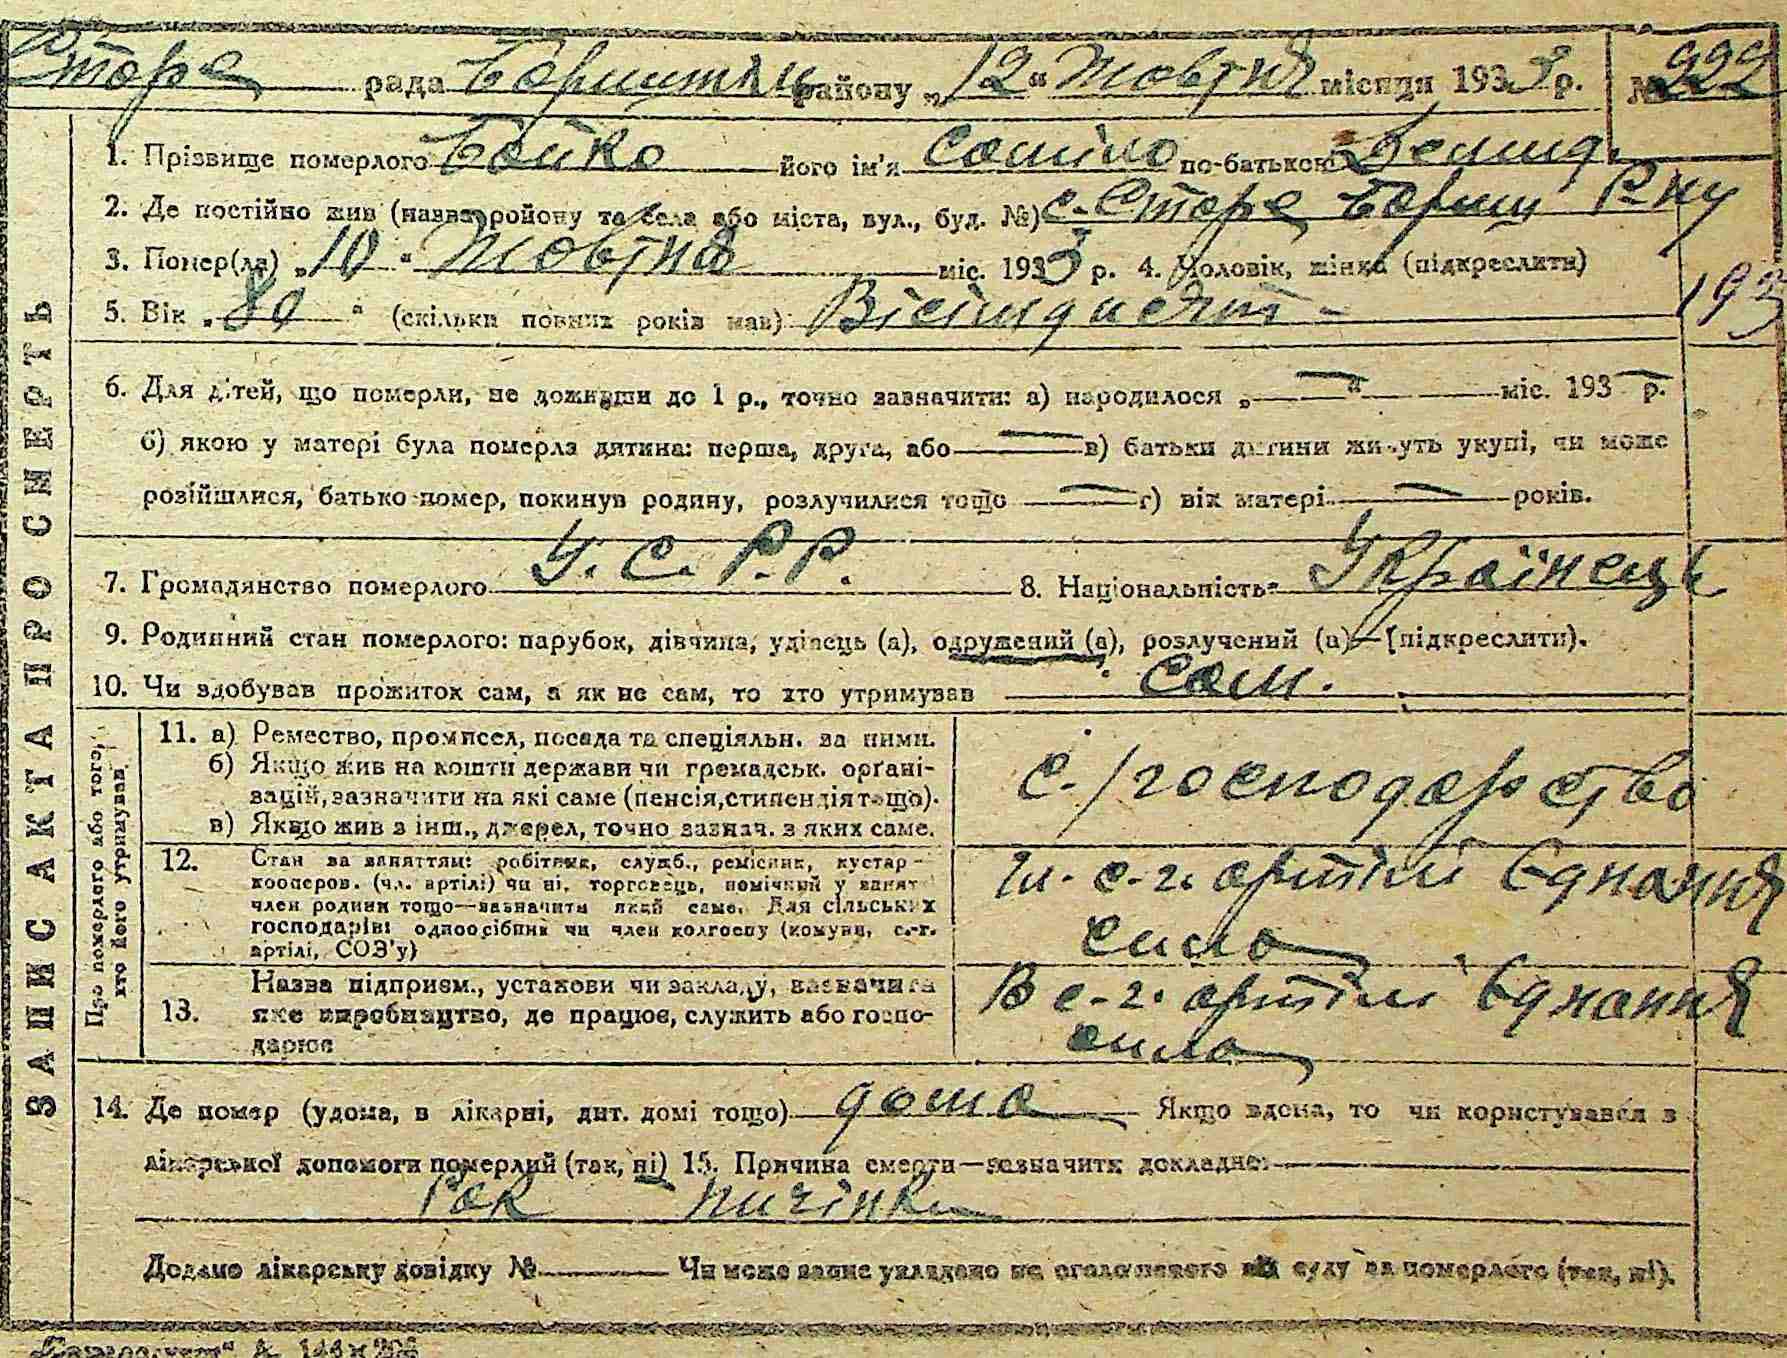 Старе рада Баришівськ району „12" Жовтня місяця 1933 р. № 222
1. Прізвище померлого Бойко його ім'я по-батькові Демид.
2. Де постійно жив (назва ройону та села або міста, вул., буд. №) с. Старе Бариш Р-ну
3. Помер(ла) „10" Жовтня міс. 1933 р. 4. Чоловік, жінка (підкреслити)
193
5. Вік „80" (скільки повних років мав) Вісімдесят -
6. Для дітей, що померли, не доживши до 1 р., точно зазначити: а) народилося „—" — міс. 193 — р.
б) якою у матері була померла дитина: перша, друга, або — в) батьки дитини живуть укупі, чи може
розійшлися, батько помер, покинув родину, розлучилися тощо — г) вік матері — років.
7. Громадянство померлого У. С. Р. Р. 8. Національність Українець
9. Родинний стан померлого: парубок, дівчина, удівець (а), одружений (а), розлучений (а)—[підкреслити).
10. Чи здобував прожиток сам, а як не сам, то хто утримував сам.
11. а) Ремество, промисел, посада та спеціяльн. за ними.
б) Якщо жив на кошти держави чи громадськ. органі-
зацій, зазначити на які саме (пенсія, стипендія тощо).
в) Якщо жив з інш., джерел, точно зазнач. з яких саме.
с./господарство
12. Стан за заняттям: робітник, служб., ремісник, кустар —
кооперов. (чл. артілі) чи ні, торговець, помічний у занят
член родини тощо—зазначити який саме. Для сільських
господарів: одноосібник чи член колгоспу (комуни, с.-г.
артілі, СОЗ'у)
с.-г. артілі Єднання
сила
13. Назва підприєм., установи чи закладу, зазначити
яке виробництво, де працює, служить або госпо-
дарює
В с-г. артілі Єднання
сила
14. Де помер (удома, в лікарні, дит. домі тощо) дома Якщо вдома, то чи користувався з
лікарської допомоги померлий (так, ні) 15. Причина смерти—зазначити докладно:
Рак пичінки
Додано лікарську довідку № — Чи може запис укладено на оголошеного від суду за померлого (так, ні).
ЗАПИС АКТА ПРО СМЕРТЬ
Про померлого або того,
хто його утримував